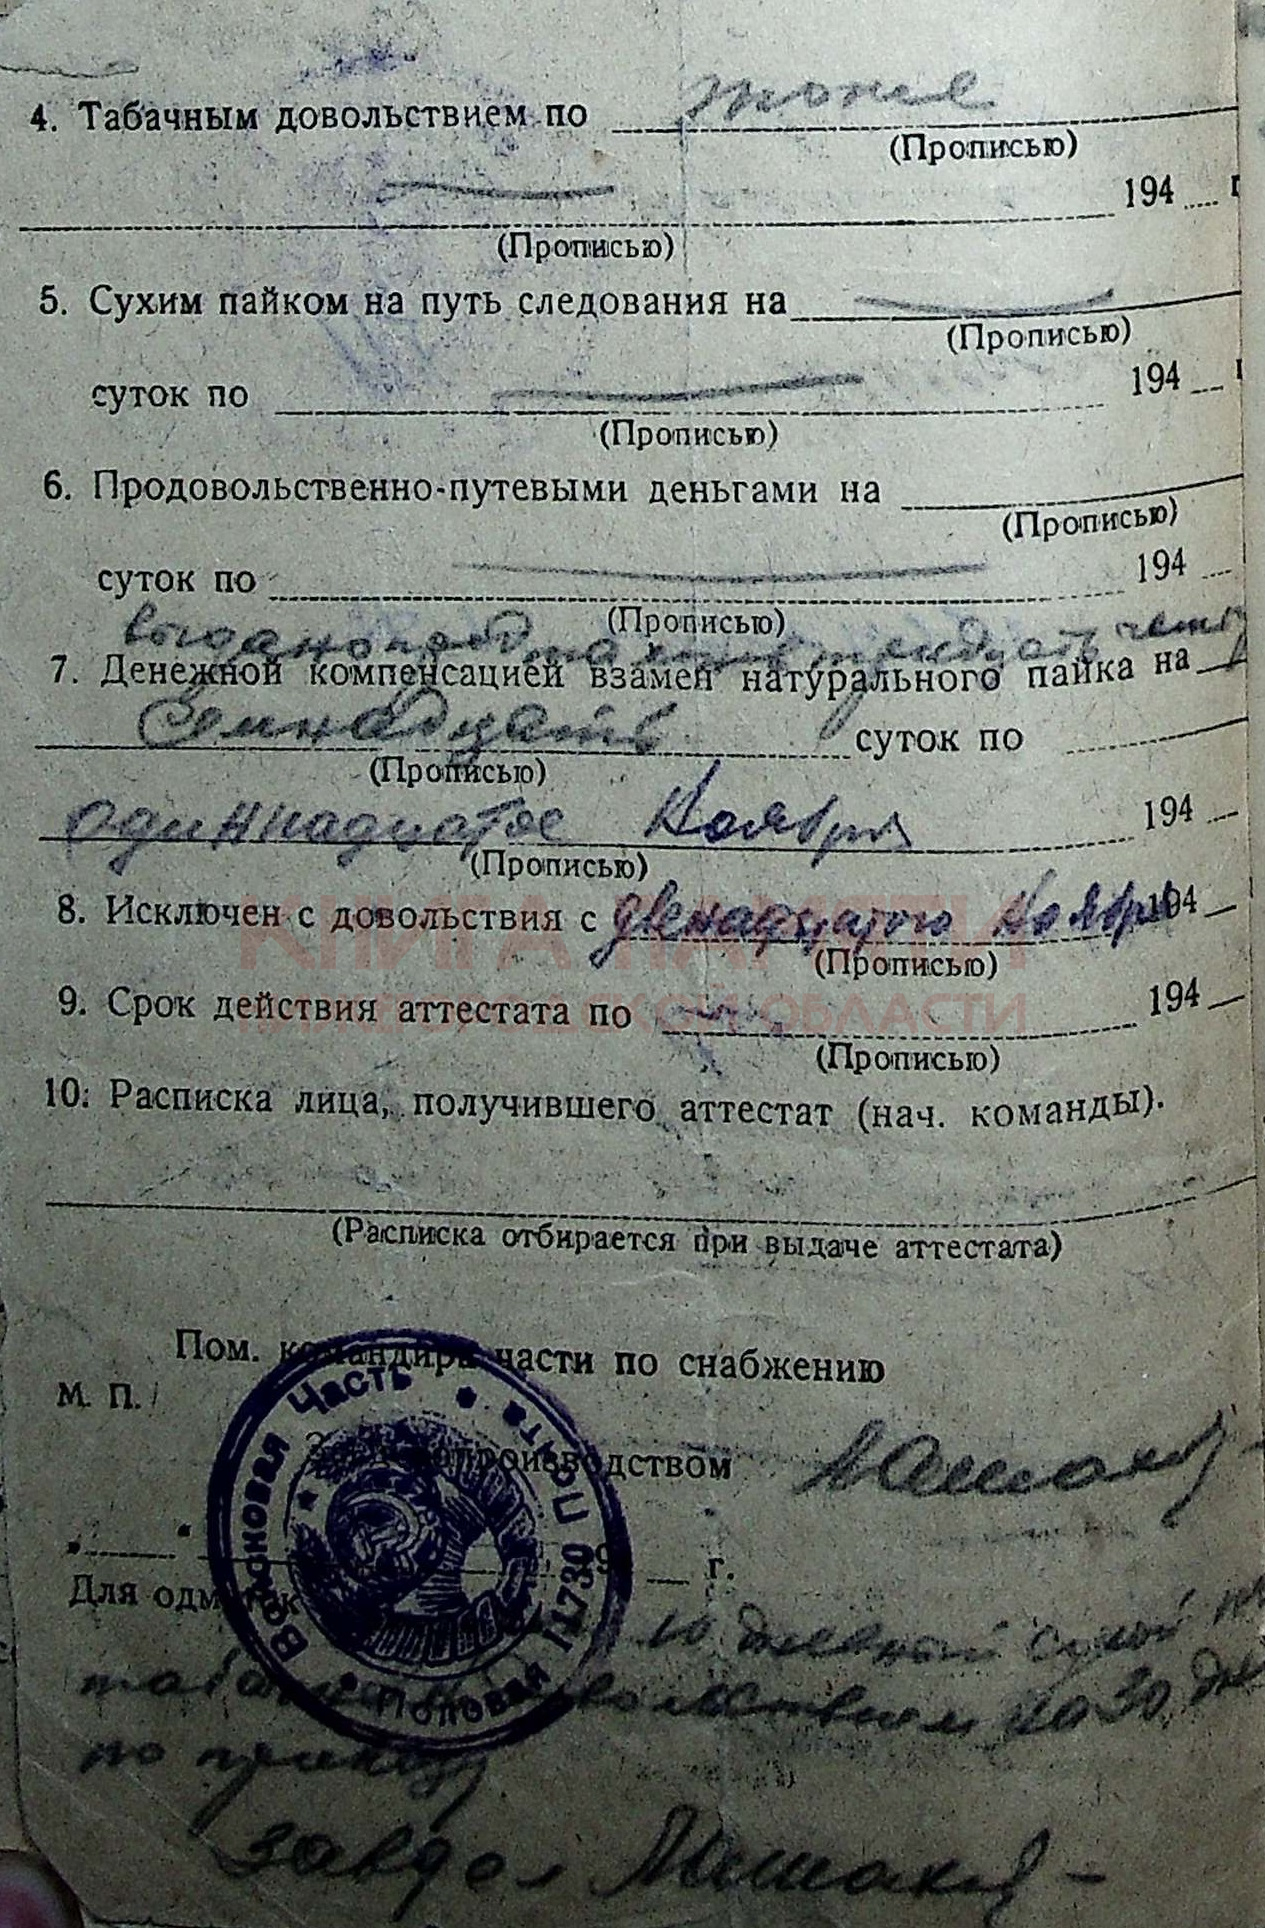 4. Табачным довольствием по тоже
(Прописью)
194 г
(Прописью)
5. Сухим пайком на путь следования на
(Прописью)
суток по 194
(Прописью)
6. Продовольственно-путевыми деньгами на
(Прописью)
суток по 194
(Прописью)
выдано
7. Денежной компенсацией взамен натурального пайка на
Семнадцать суток по
(Прописью)
одиннадцатое Ноября 194
(Прописью)
8. Исключен с довольствия с двенадцатого Ноября 194
(Прописью)
КНИГА ПАМЯТИ
9. Срок действия аттестата по 194
ОБЛАСТИ
(Прописью)
10. Расписка лица, получившего аттестат (нач. команды).
(Расписка отбирается при выдаче аттестата)
Пом. командира части по снабжению
М. П.
Зав. делопроизводством
194 г.
Для отметок
10 дневный сухой
табачным довольствием на 30 дней
по приказу
завдел
Войсковая Часть
Полевая Почта
11730